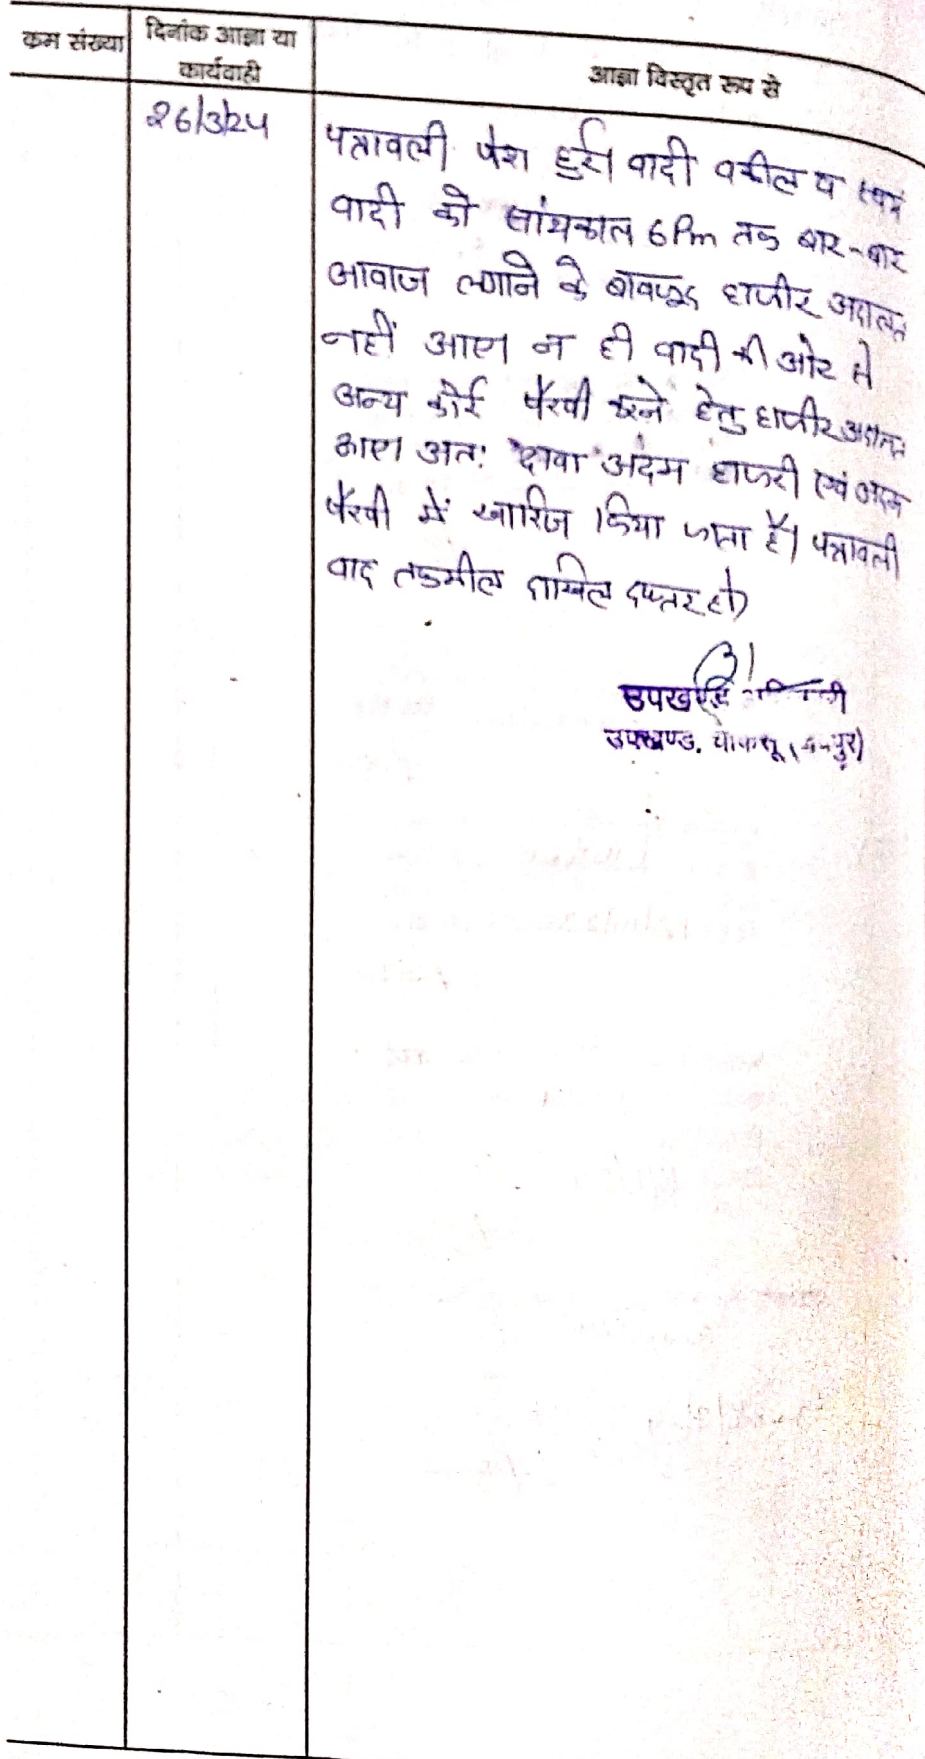 कम संख्या
दिनांक आज्ञा या
कार्यवाही
आज्ञा विस्तृत रूप से
26/3/24
पत्रावली पेश हुई। वादी वकील व स्वयं
वादी को सांयकाल 6 Pm तक बार-बार
आवाज लगाने के बावजूद हाजीर अदालत
नहीं आए। न ही वादी की ओर से
अन्य कोई पैरवी करने हेतु हाजीर अदालत
आए। अतः दावा अदम हाजरी एवं अदम
पैरवी में खारिज किया जाता है। पत्रावली
वाद तकमील दाखिल दफ्तर हो।
उपखण्ड
उपखण्ड, चाकसू